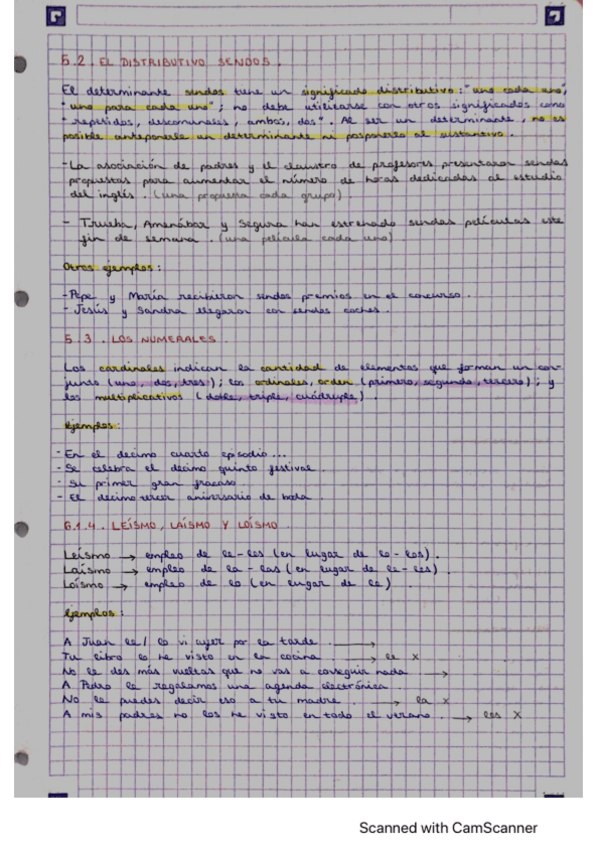 5.2. EL DISTRIBUTIVO SENDOS.
El determinante sendos tiene un significado distributivo: "uno cada uno",
"uno para cada uno"; no debe utilizarse con otros significados como
"repetidos, descomunales, ambos, dos". Al ser un determinante, no es
posible anteponerle un determinante ni posponerlo al sustantivo.
-La asociación de padres y el claustro de profesores presentaron sendas
propuestas para aumentar el número de horas dedicadas al estudio
del inglés. (una propuesta cada grupo).
- Trueba, Amenábar y Segura han estrenado sendas películas este
fin de semana. (una película cada uno).
Otros ejemplos:
-Pepe y María recibieron sendos premios en el concurso.
-Jesús y Sandra llegaron con sendos coches.
5.3. LOS NUMERALES.
Los cardinales indican la cantidad de elementos que forman un con-
junto (uno, dos, tres); los ordinales, orden (primero, segundo, tercero); y
los multiplicativos (doble, triple, cuádruple).
Ejemplos:
-En el décimo cuarto episodio...
-Se celebra el décimo quinto festival.
-Su primer gran fracaso.
-El décimo tercer aniversario de boda.
6.1.4. LEÍSMO, LAÍSMO Y LOÍSMO.
Leísmo → empleo de le-les (en lugar de lo-los).
Laísmo → empleo de la-las (en lugar de le-les).
Loísmo → empleo de lo (en lugar de le)
Ejemplos:
A Juan le/lo vi ayer por la tarde. →
Tu libro lo he visto en la cocina → le X
No le des más vueltas que no vas a conseguir nada →
A Pedro le regalamos una agenda electrónica.
No le puedes decir eso a tu madre. → la X
A mis padres no los he visto en todo el verano. → les X
Scanned with CamScanner